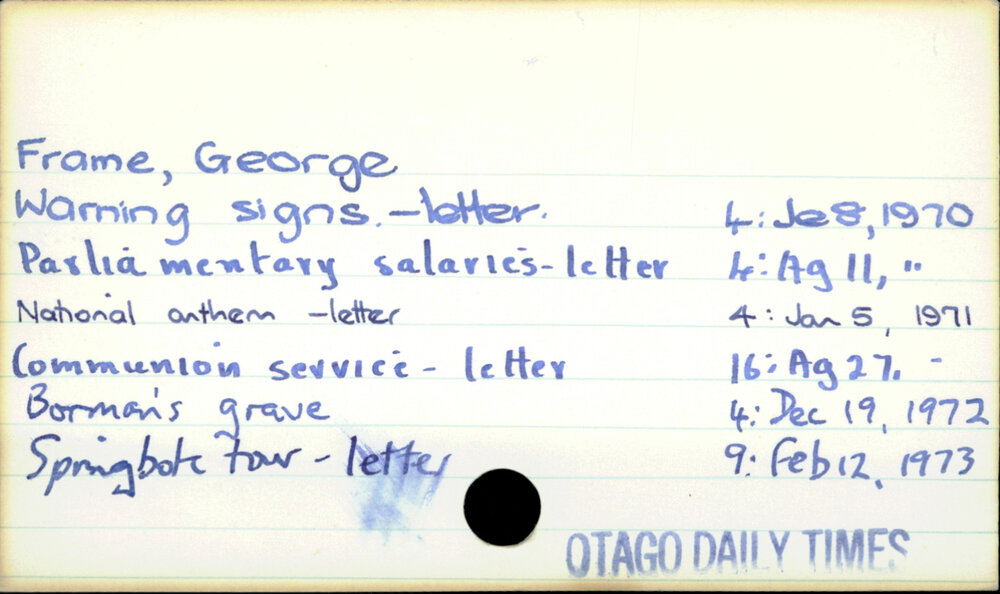 Frame, George
Warning signs.-letter. 4: Je 8, 1970
Parliamentary salaries-letter 4: Ag 11, "
National anthem -letter 4: Jan 5, 1971
Communion service - letter 16: Ag 27. -
Borman's grave 4: Dec 19, 1972
Springbok tour - letter 9: Feb 12, 1973
OTAGO DAILY TIMES